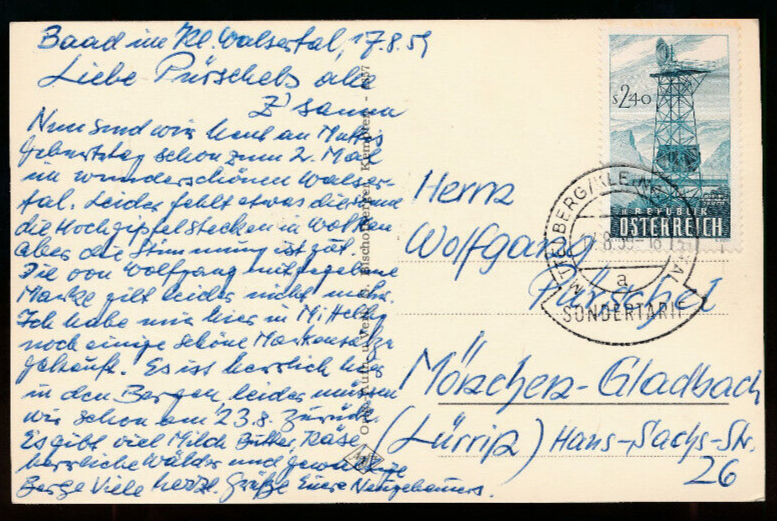 Baad im Kl. Walsertal, 17.8.59
Liebe Pürschels alle
z'samm
Nun sind wir heut an Muttis
Geburtstag schon zum 2. Mal
im wunderschönen Walser-
tal. Leider fehlt etwas die Sonne
die Hochgipfel stecken in Wolken
aber die Stimmung ist gut.
Die von Wolfgang mitgegebene
Marke gilt leider nicht mehr.
Ich habe mir hier in Mittelbg
noch einige schöne Marken
gekauft. Es ist herrlich hier
in den Bergen, leider müssen
wir schon am 23.8. zurück.
Es gibt viel Milch, Butter, Käse,
herrliche Wälder und gewaltige
Berge Viele herzl. Grüße Eure Neugebauers.
Kempten
Herrn
Wolfgang
Pürschel
Mönchen-Gladbach
(Lürrip) Hans-Sachs-Str.
26
S2·40
REPUBLIK
ÖSTERREICH
MITTELBERG/KLEINWALSERTAL
8.59-18
a
SONDERTARIF